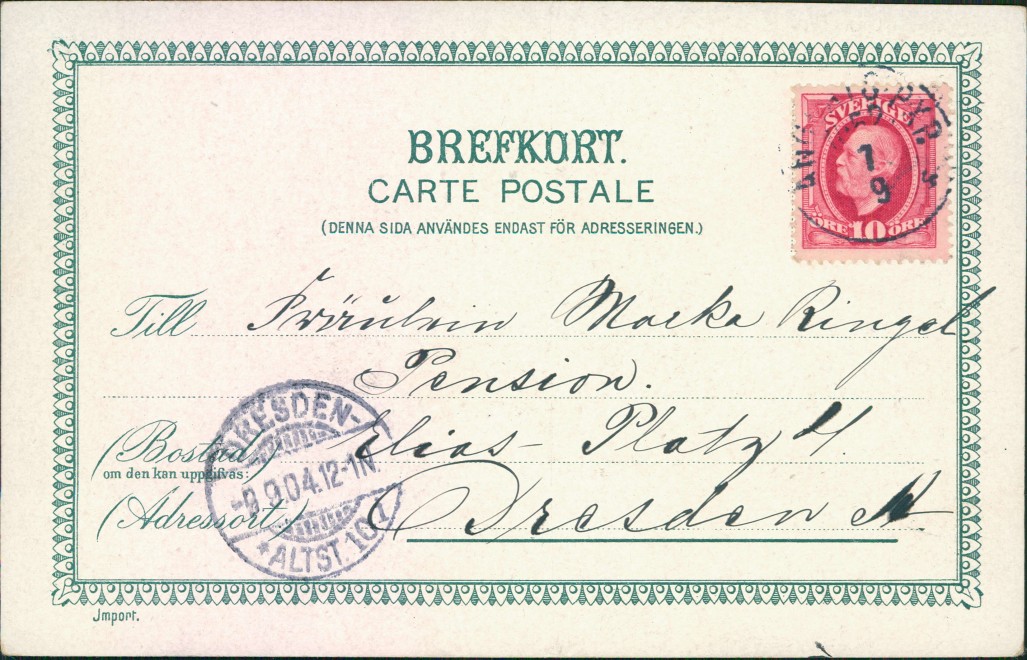 BREFKORT.
CARTE POSTALE
(DENNA SIDA ANVÄNDES ENDAST FÖR ADRESSERINGEN.)
SVERIGE
7
9
ÖRE 10 ÖRE
Till Fräulein Macka Ringel
Pension.
(Bostad) Elias Platz 4
om den kan uppgifvas:
(Adressort) Dresden A
DRESDEN-
9.04.12-1N.
*ALTST.10
Import.